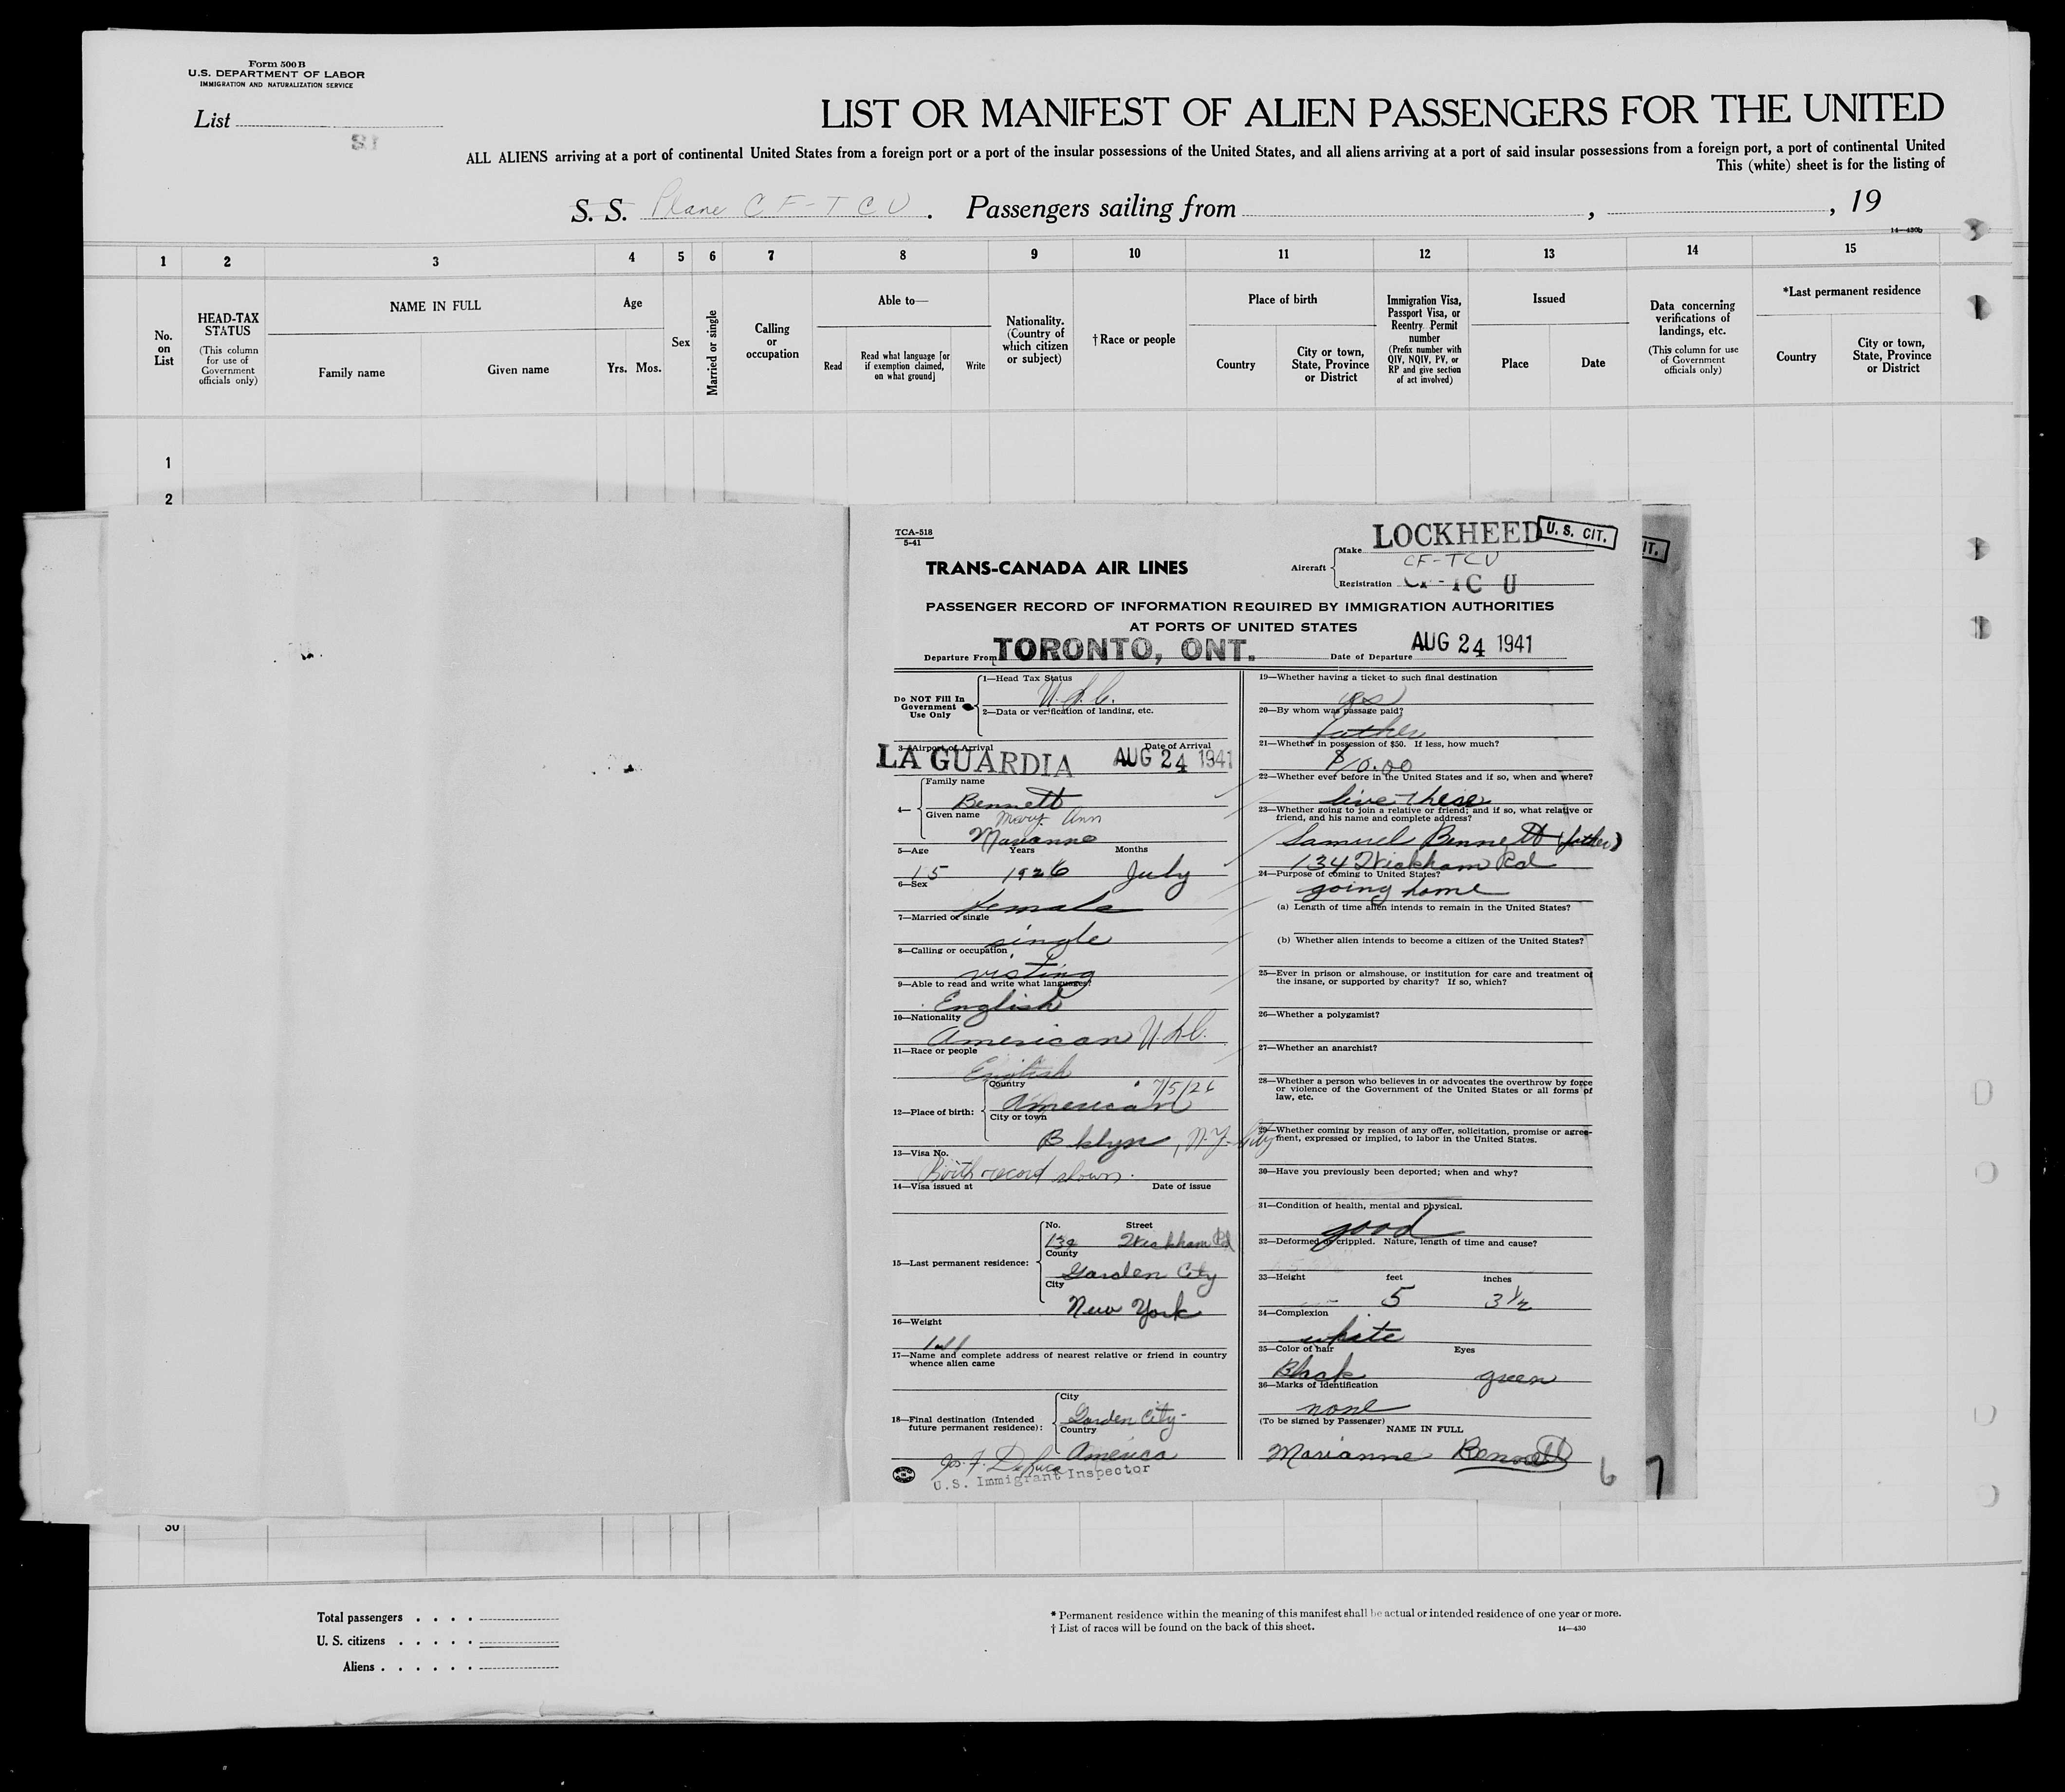 Form 500B
U.S. DEPARTMENT OF LABOR
IMMIGRATION AND NATURALIZATION SERVICE
List
31
LIST OR MANIFEST OF ALIEN PASSENGERS FOR THE UNITED
ALL ALIENS arriving at a port of continental United States from a foreign port or a port of the insular possessions of the United States, and all aliens arriving at a port of said insular possessions from a foreign port, a port of continental United
This (white) sheet is for the listing of
S. S. Plane CF-TCU . Passengers sailing from , , 19
14—430b
1 2 3 4 5 6 7 8 9 10 11 12 13 14 15
No. on List
HEAD-TAX STATUS
(This column for use of Government officials only)
NAME IN FULL
Family name Given name
Age
Yrs. Mos.
Sex
Married or single
Calling or occupation
Able to—
Read
Read what language [or if exemption claimed, on what ground]
Write
Nationality. (Country of which citizen or subject)
†Race or people
Place of birth
Country
City or town, State, Province or District
Immigration Visa, Passport Visa, or Reentry Permit number
(Prefix number with QIV, NQIV, PV, or RP and give section of act involved)
Issued
Place Date
Data concerning verifications of landings, etc.
(This column for use of Government officials only)
*Last permanent residence
Country
City or town, State, Province or District
1
2
TCA-518
5-41
TRANS-CANADA AIR LINES
Aircraft
Make LOCKHEED
U. S. CIT.
IT.
CF-TCU
Registration CF-TCU
PASSENGER RECORD OF INFORMATION REQUIRED BY IMMIGRATION AUTHORITIES
AT PORTS OF UNITED STATES
Departure From TORONTO, ONT. Date of Departure AUG 24 1941
Do NOT Fill In Government Use Only
1—Head Tax Status
U.S.C.
2—Data or verification of landing, etc.
3—Airport of Arrival Date of Arrival
LA GUARDIA AUG 24 1941
4—
Family name
Bennett
Given name Mary Ann
Marianne
5—Age Years Months
15 1926 July
6—Sex
female
7—Married or single
single
8—Calling or occupation
visting
9—Able to read and write what language?
English
10—Nationality
American U.S.C.
11—Race or people
English
12—Place of birth:
Country 7/5/26
American
City or town
Bklyn, N.Y. City
13—Visa No.
Birth record shown.
14—Visa issued at Date of issue
15—Last permanent residence:
No. Street
134 Wickham Rd
County
Garden City
City
New York
16—Weight
17—Name and complete address of nearest relative or friend in country
whence alien came
18—Final destination (Intended
future permanent residence):
City
Garden City-
Country
America
Jos. F. DeLuca
U.S. Immigrant Inspector
19—Whether having a ticket to such final destination
yes
20—By whom was passage paid?
father
21—Whether in possession of $50. If less, how much?
$10.00
22—Whether ever before in the United States and if so, when and where?
live these
23—Whether going to join a relative or friend; and if so, what relative or
friend, and his name and complete address?
Samuel Bennett (father)
134 Wickham Rd
24—Purpose of coming to United States?
going home
(a) Length of time alien intends to remain in the United States?
(b) Whether alien intends to become a citizen of the United States?
25—Ever in prison or almshouse, or institution for care and treatment of
the insane, or supported by charity? If so, which?
26—Whether a polygamist?
27—Whether an anarchist?
28—Whether a person who believes in or advocates the overthrow by force
or violence of the Government of the United States or all forms of
law, etc.
29—Whether coming by reason of any offer, solicitation, promise or agree-
ment, expressed or implied, to labor in the United States.
30—Have you previously been deported; when and why?
31—Condition of health, mental and physical.
good
32—Deformed or crippled. Nature, length of time and cause?
33—Height feet inches
5 3 1/2
34—Complexion
white
35—Color of hair Eyes
Black green
36—Marks of identification
none
(To be signed by Passenger)
NAME IN FULL
Marianne Bennett
6
7
30
Total passengers . . . .
U. S. citizens . . . . .
Aliens . . . . . .
* Permanent residence within the meaning of this manifest shall be actual or intended residence of one year or more.
† List of races will be found on the back of this sheet.
14—430